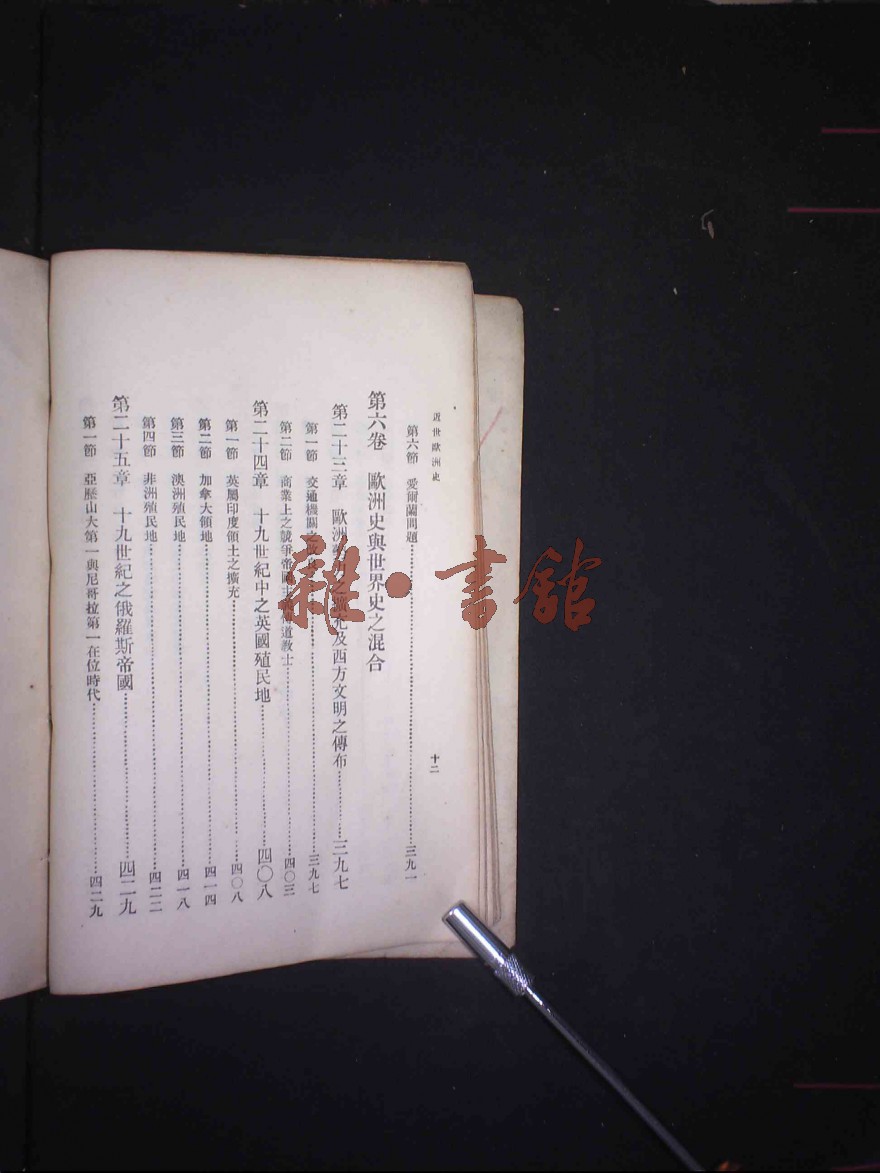 近世歐洲史
十二
第六節 愛爾蘭問題……三九一
第六卷 歐洲史與世界史之混合
第二十三章 歐洲勢力之擴充及西方文明之傳布……三九七
第一節 交通機關之……三九七
第二節 商業上之競爭帝國主義傳道教士……四〇三
第二十四章 十九世紀中之英國殖民地……四〇八
第一節 英屬印度領土之擴充……四〇八
第二節 加拿大領地……四一四
第三節 澳洲殖民地……四一八
第四節 非洲殖民地……四二二
第二十五章 十九世紀之俄羅斯帝國……四二九
第一節 亞歷山大第一與尼哥拉第一在位時代……四二九
雜·書館